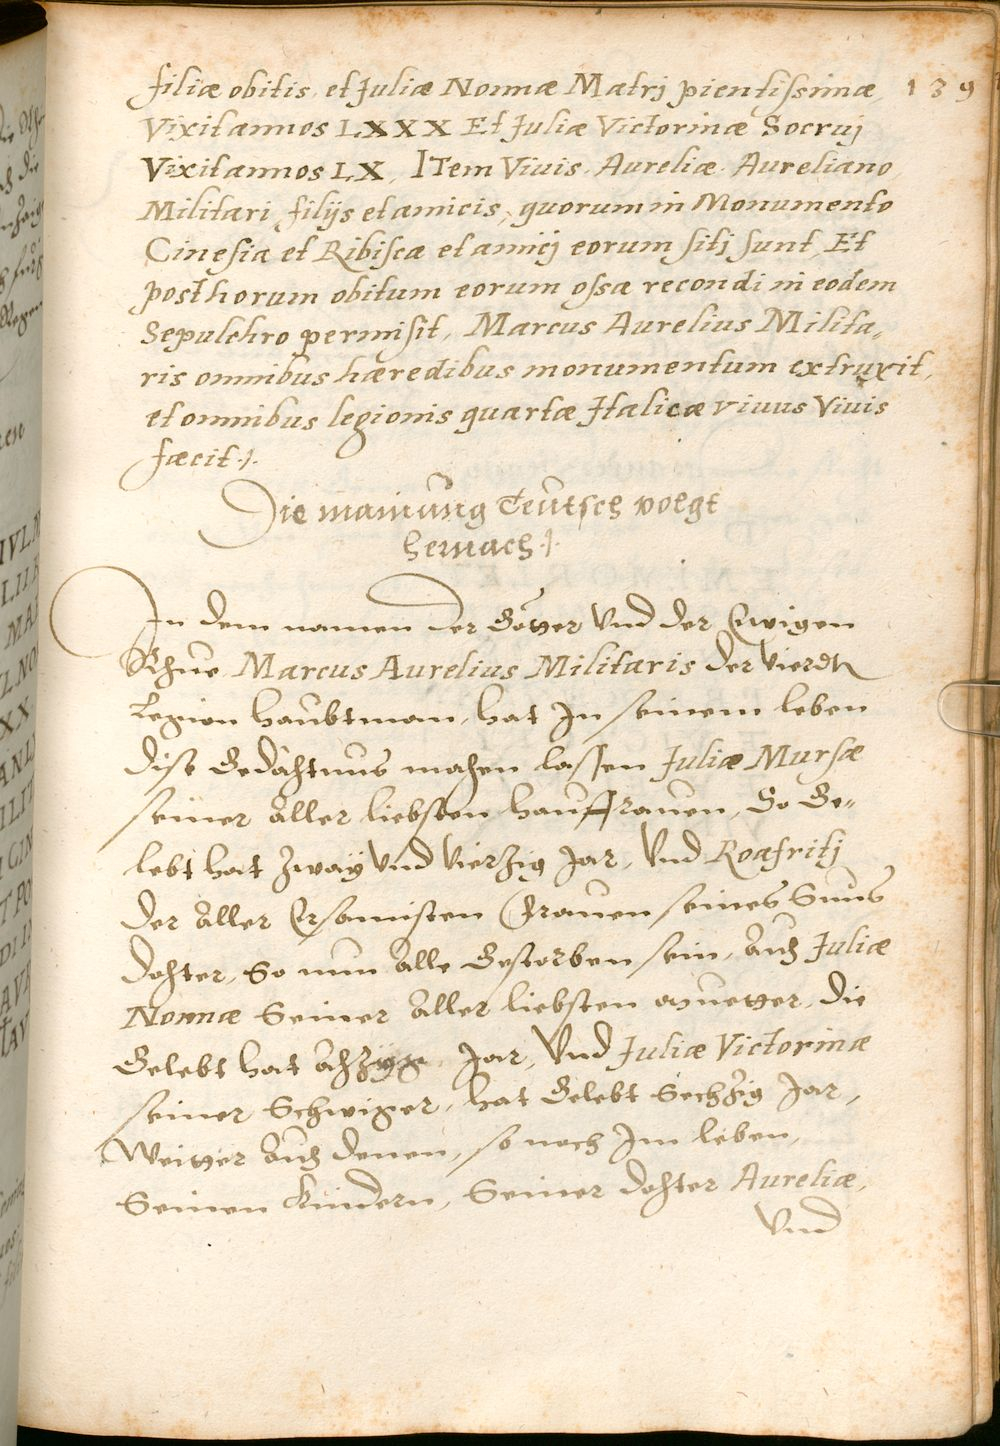 filiæ obitis, et Juliæ Nonnæ Matrj pientissimæ 139
Vixit annos LXXX Et Juliæ Victorinæ Socruj
Vixit annos LX, ITem Viuis. Aureliæ. Aureliano
Militari, filijs et amicis, quorum in Monumento
Cinesia et Ribiscæ et amicj eorum sitj sunt, Et
post horum obitum eorum ossa recondi in eodem
Sepulchro permisit, Marcus Aurelius Milita„
ris omnibus hæredibus monumentum extruxit,
et omnibus legionis quartæ Italicæ viuus Viuis
fæcit.
Die mainung Teutsch volgt
hernach.
In dem namen der Götter Vnd der Ewigen
Rhue Marcus Aurelius Militaris der Vierdtn
Legion haubtman, hat In seinem leben
dise Gedächtnus machen lassen Juliæ Mursæ
seiner Aller liebsten hausfrauen, So Ge„
lebt hat Zway Vnd Vierzig Jar, Vnd Roæfritj
der Aller Ersamisten Frauen seines Suns
dochter, So nun Alle Gestorben sein, Auch Juliæ
Nonnæ Seiner Aller liebsten Muetter, die
Gelebt hat Jar, Vnd Juliæ Victorinæ
seiner Schwiger, hat Gelebt Sechzig Jar,
Weitter Auch denen, so noch Im leben,
Seinen Kindern, Seiner dochter Aureliæ,
Vnd